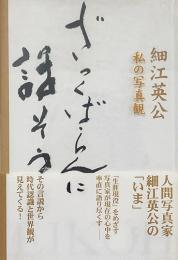 細江英公
私の写真観
ざっくばらんに
話そう
人間写真家
細江英公の
「いま」
「生涯現役」をめざす
写真家が現在の心中を
率直に語り尽くす
その言説から
時代認識と世界観が
見えてくる！